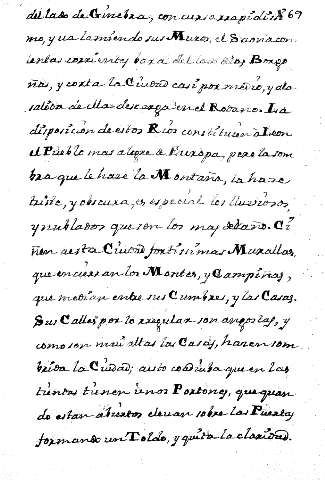 del lado de Ginebra, con curso rapidisi 69
mo, y va lamiendo sus Muros, el Saona con
lenta corriente baxa del
ñas, y corta la Ciudad casi por medio, y a la
salida de ella descarga en el Rodano. La
disposición de estos Rios constituìen a Leon
el Pueblo mas alegre de Europa, pero la som
bra que le haze la Montaña, la haze
triste, y obscura, es especial los lluviosos,
y nublados que son los mas del año. Ci
ñen a esta Ciudad fortissimas Murallas,
que encierran los Montes, y Campiñas,
que median entre sus Cumbres, y las Casas.
Sus Calles por lo regular son angostas, y
como son mui altas las Casas, hazen som
brida la Ciudad; a esto coadiuba que en las
tiendas tienen unos Portones, que quan
do estan abiertos elevan sobre las Puertas
formando un Toldo, y quita la claridad.